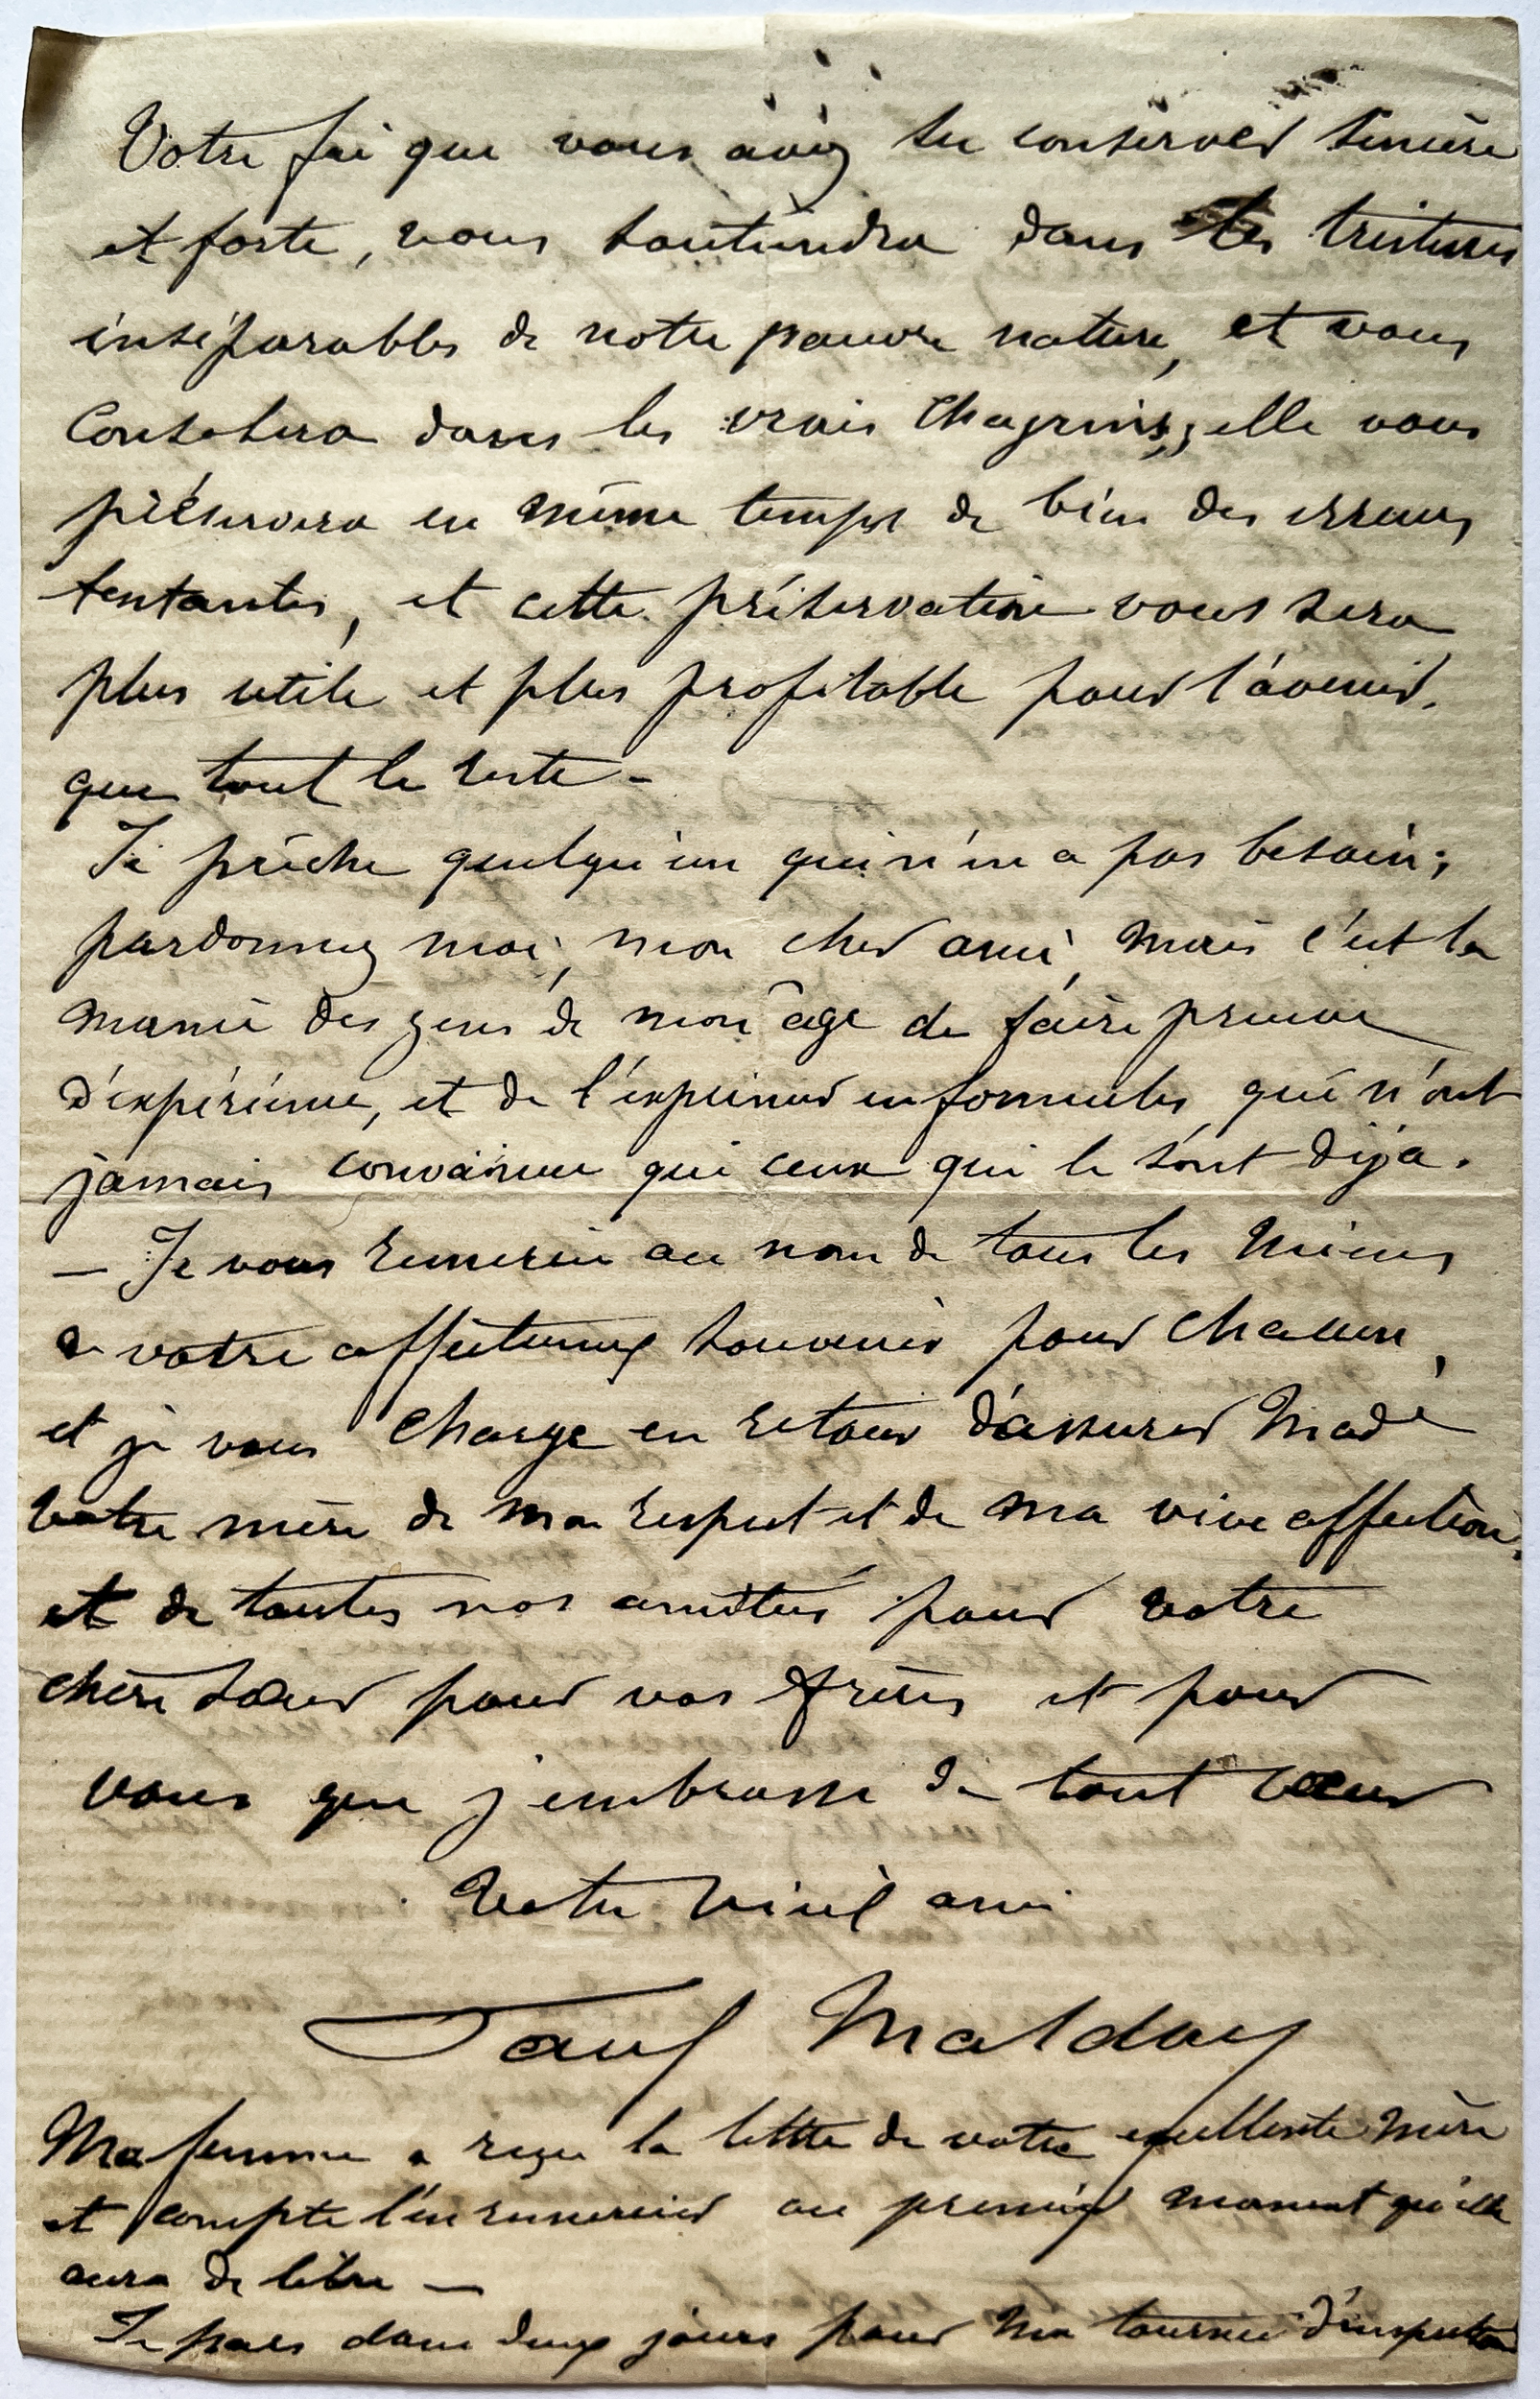 Votre foi que vous avez su conserver sincère
et forte, vous soutiendra dans les tristesses
inséparables de notre pauvre nature, et vous
Consolera dans les vrais chagrins, elle vous
préservera en même temps de bien des erreurs
tentantes, et cette préservation vous sera
plus utile et plus profitable pour l'avenir.
que tout le reste -
Je prêche quelqu'un qui n'en a pas besoin;
pardonnez moi, mon cher ami, mais c'est la
manie des gens de mon âge de faire preuve
d'expérience, et de l'exprimer en formules qui n'ont
jamais convaincu que ceux qui le sont déjà.
— Je vous remercie au nom de tous les miens
de votre affectueux souvenir pour chacun,
et je vous charge en retour d'assurer Made
votre mère de mon respect et de ma vive affection,
et de toutes nos amitiés pour votre
chère soeur pour vos frères et pour
vous que j'embrasse de tout coeur
Votre vieil ami
Paul Malday
Ma femme a reçu la lettre de votre excellente mère
et compte l'en remercier au premier moment qu'elle
aura de libre —
Je pars dans deux jours pour ma tournée d'inspection